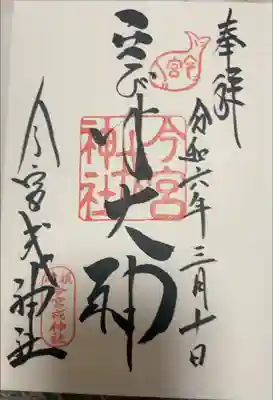 奉拝
令和六年三月十日
今宮
ゑびす大神
今宮戎神社
今宮戎神社
今宮戎神社